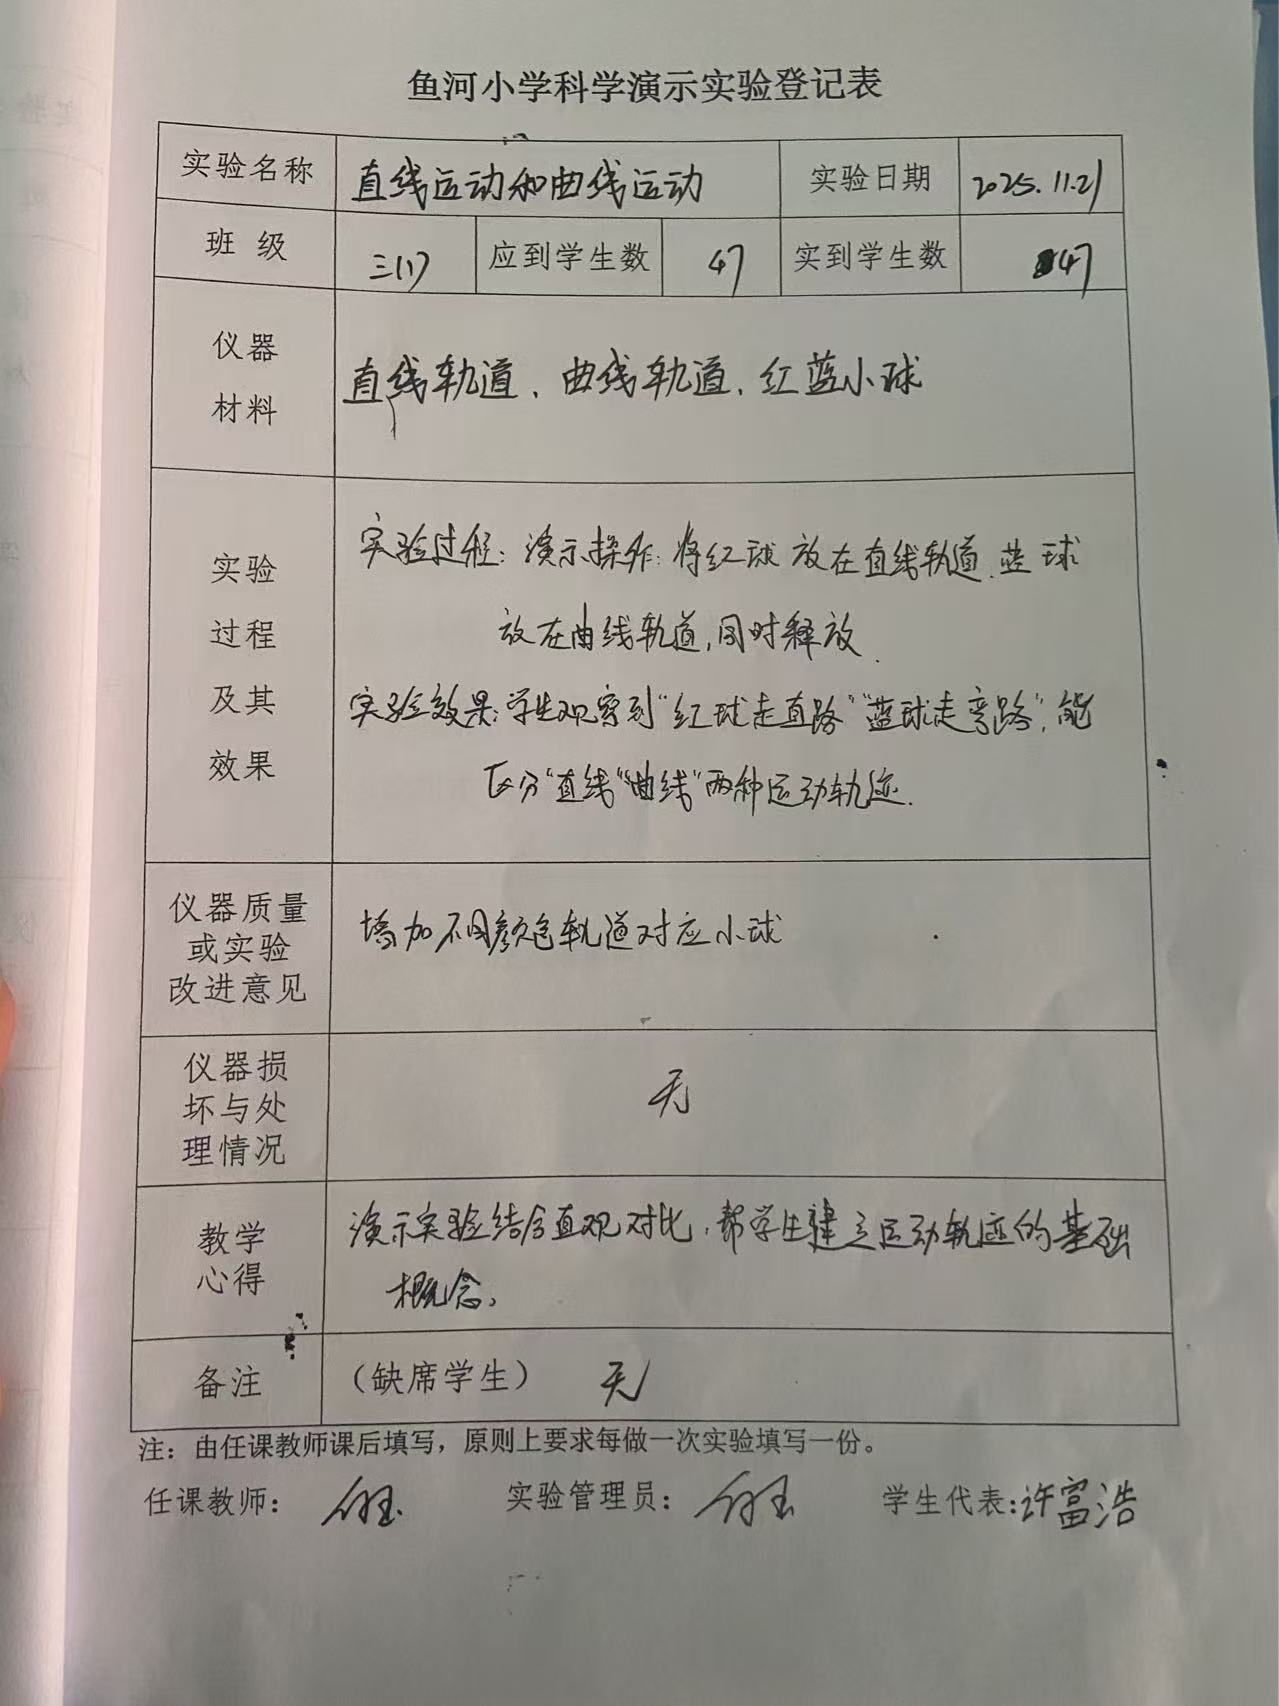 鱼河小学科学演示实验登记表
实验名称 直线运动和曲线运动 实验日期 2025.11.21
班 级 三(1) 应到学生数 47 实到学生数 47
仪器
材料
直线轨道、曲线轨道、红蓝小球
实验
过程
及其
效果
实验过程：演示操作：将红球放在直线轨道、蓝球
放在曲线轨道,同时释放.
实验效果：学生观察到“红球走直路”“蓝球走弯路”,能
区分“直线”“曲线”两种运动轨迹.
仪器质量
或实验
改进意见
增加不同颜色轨道对应小球
仪器损
坏与处
理情况
无
教学
心得
演示实验结合直观对比,帮学生建立运动轨迹的基础
概念。
备注 （缺席学生） 无
注：由任课教师课后填写，原则上要求每做一次实验填写一份。
任课教师： 实验管理员： 学生代表:许富浩